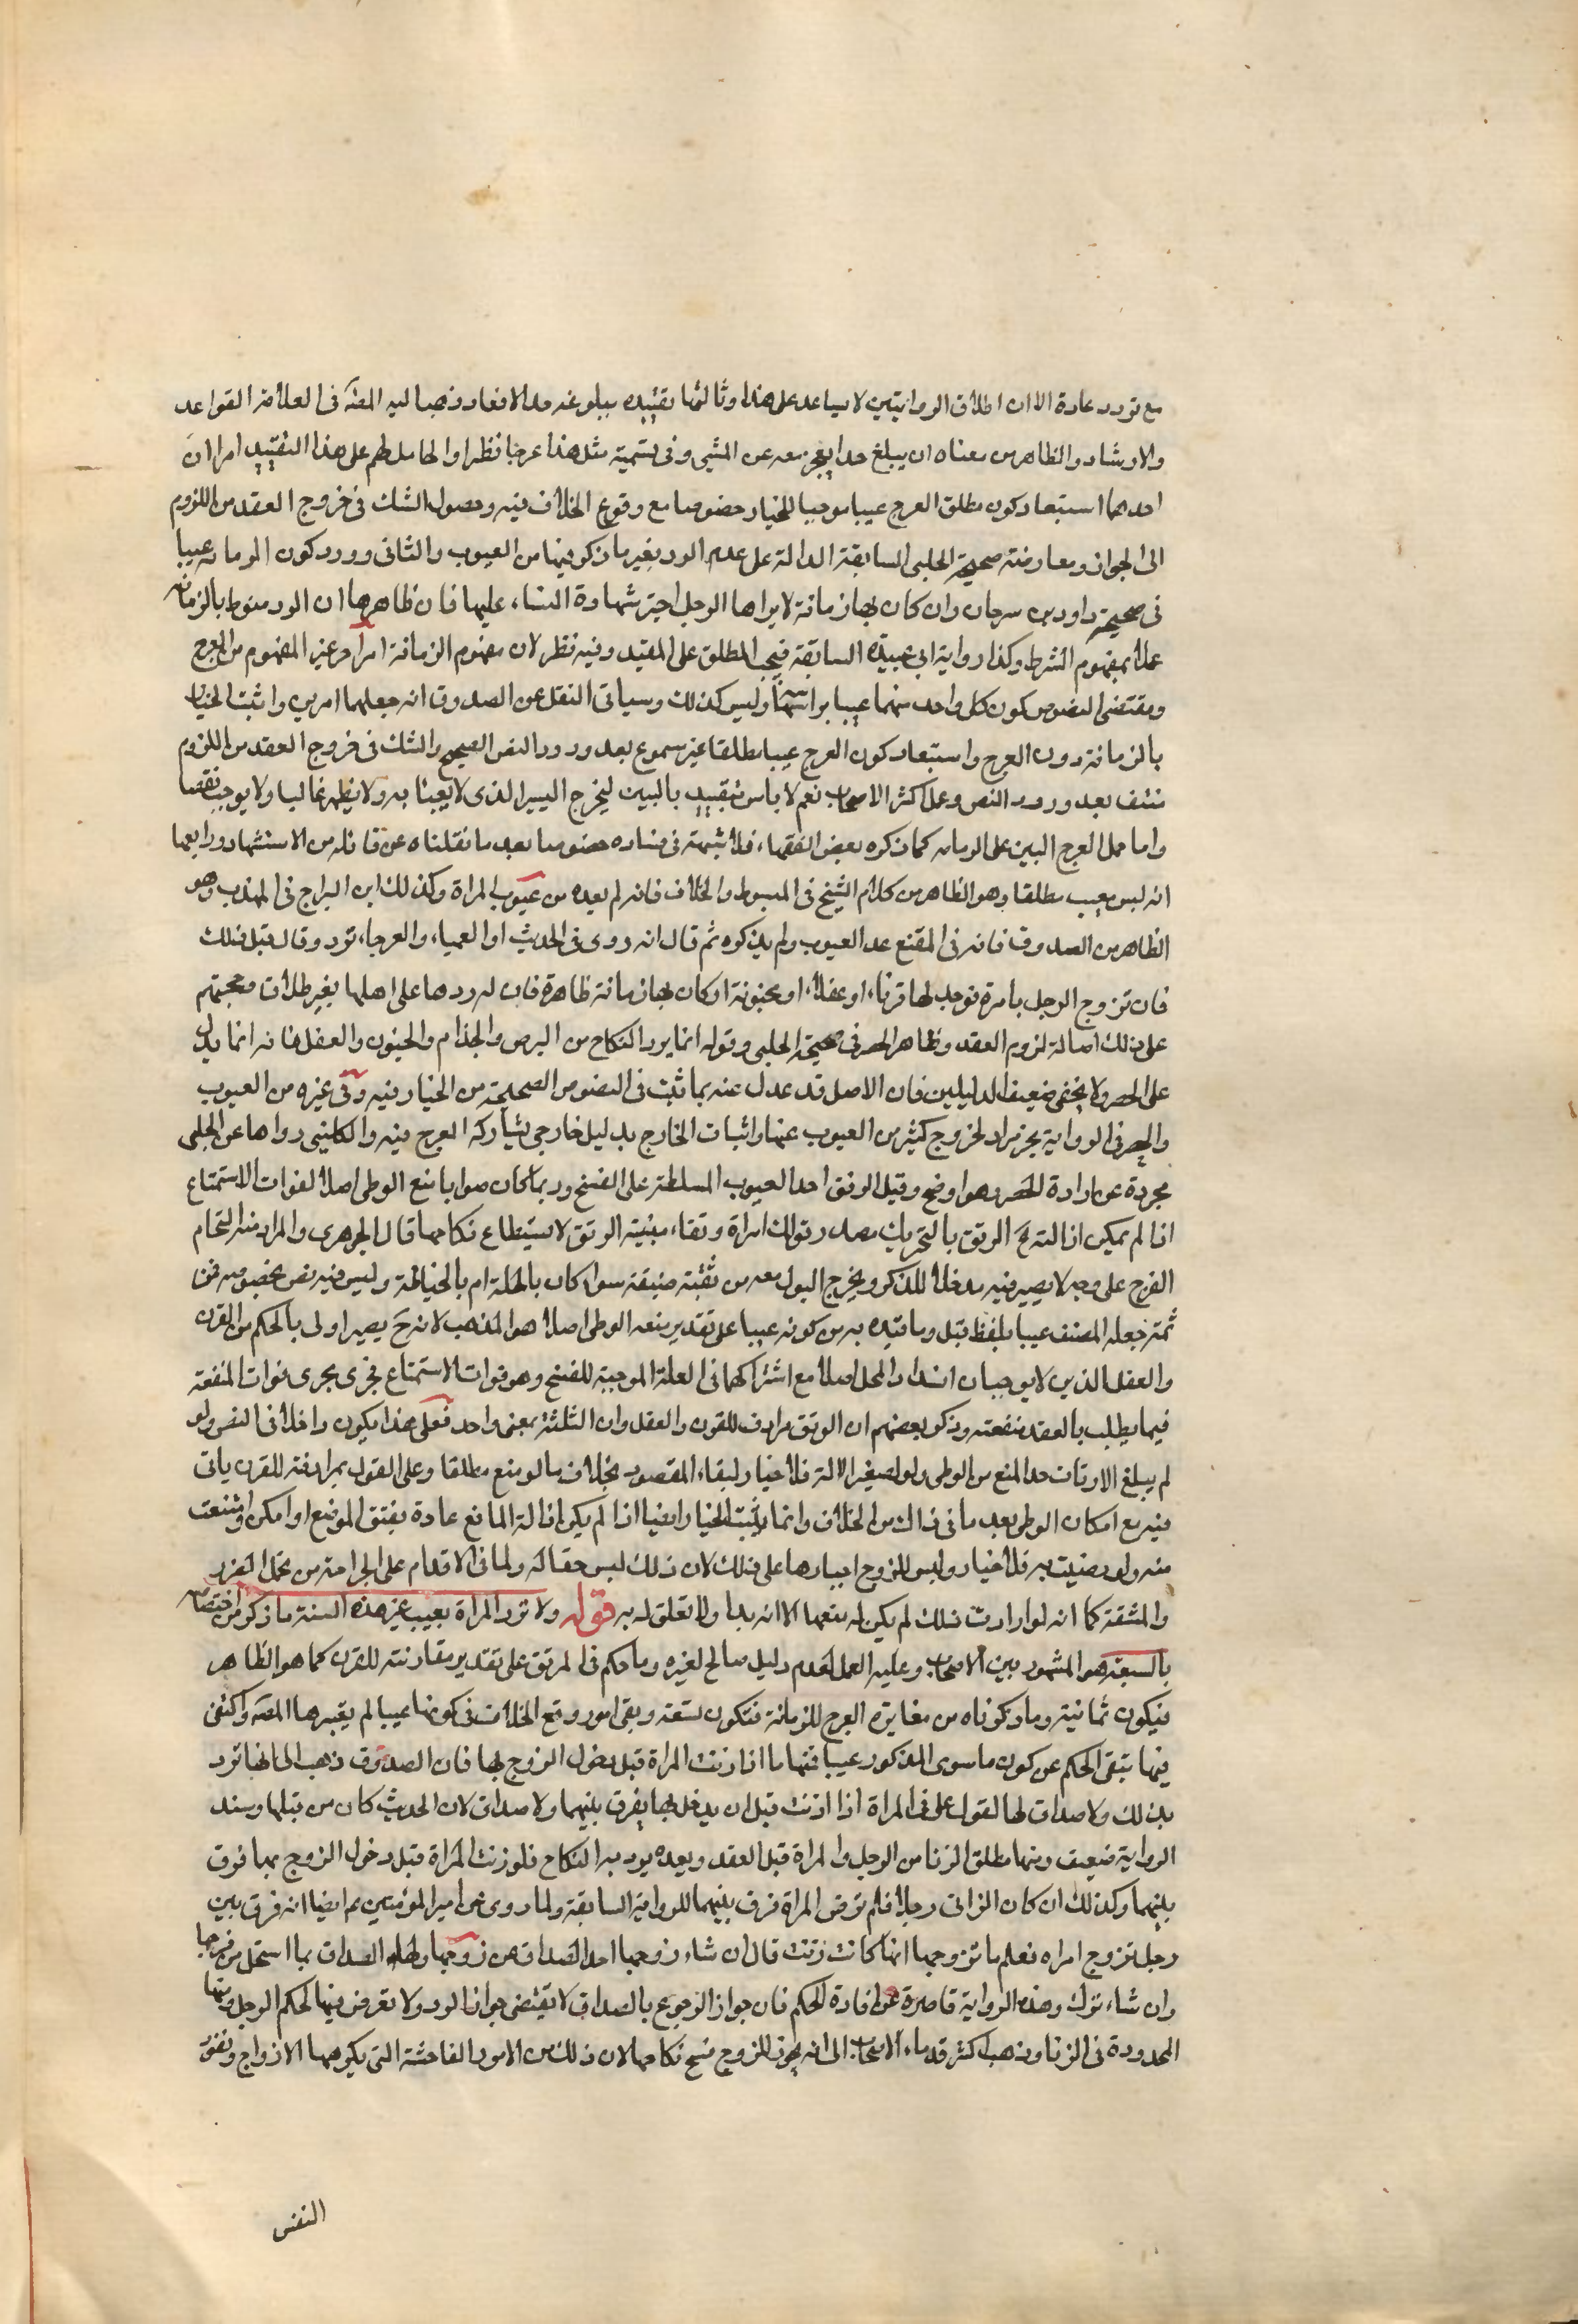 مع تردد عادة الا ان اطلاق الروايتين لا يساعد على هذا وثالثها تقييده ببلوغه حد الاقعاد ذهب اليه المصنف فى العلامة القواعد
والارشاد والظاهر من معناه ان يبلغ حدا يعجز معه عن المشى وفى تسمية مثل هذا عرجا نظر او الحامل لهم على هذا التقييد امران
احدهما استبعاد كون مطلق العرج عيبا موجبا للخيار خصوصا مع وقوع الخلاف فيه وحصول الشك فى خروج العقد من اللزوم
الى الجواز ومعارضته صحيحة الحلبى السابقة الدالة على عدم الرد بغير ما ذكر فيها من العيوب والثانى وورد كون الزمانه عيبا
فى صحيحة داود بن سرحان وان كان بها زمانة لا يراها الرجل اجيز شهادة النساء عليها فان ظاهرها ان الرد منوط بالزمانه
عملا بمفهوم الشرط وكذا رواية ابى عبيدة السابقة فيجب المطلق على المقيد وفيه نظر لان مفهوم الزمانة امرا خر غير المفهوم من العرج
ومقتضى النصوص كون كل واحد منهما عيبا براسه وليس كذلك وسياتى النقل عن الصدوق انه جعلهما امرين واثبت الخيار
بالزمانة دون العرج واستبعاد كون العرج عيبا مطلقا غير مسموع بعد ورود النص الصحيح والشك فى خروج العقد من اللزوم
منتف بعد ورود النص وعمل اكثر الاصحاب نعم لا باس بتقييد بالبين ليخرج اليسير الذى لا يعبئا به ولا يظهر غالبا ولا يوجب نقصا
واما حمل العرج البين على الزمانه كما ذكره بعض الفقهاء فلا شبهة فى فساده خصوصا بعد ما نقلناه عن قائله من الاستشهاد ورابعها
انه ليس بعيب مطلقا وهو الظاهر من كلام الشيخ فى المبسوط والخلاف فانه لم يعده من عيوب المراة وكذلك ابن البراج فى المهذب وهو
الظاهر من الصدوق فانه فى المقنع عد العيوب ولم يذكره ثم قال انه روى فى الحديث او العمياء والعرجاء ترد وقال قبل ذلك
فان تزوج الرجل بامرة فوجد لها قرناء او عفلاء او مجنونة ان كان بها زمانة ظاهرة فان له ردها على اهلها بغير طلاق وحجتهم
على ذلك اصالة لزوم العقد وظاهر الحصر فى صحيحة الحلبى وقوله انما يرد النكاح من البرص والجذام والجنون والعفل فانه انما يدل
على الحصر ولا يخفى ضعيف الدليلين فان الاصل قد عدل عنه بما ثبت فى النصوص الصحيحة من الخيار فيه وفى غيره من العيوب
والحصر فى الرواية غير مراد لخروج كثير من العيوب عنها واثبات الخارج بدليل خارجى يشاركه العرج فيه والكلينى رواها عن الحلبى
مجردة عن اداة الحصر وهو اوضح وقيل الرتق احد العيوب المسلطة على الفسخ وربما كان صوابا منع الوطى اصلا لفوات الاستمتاع
اذا لم يمكن ازالته ح الرتق بالتحريك مصدر قولك امراة رتقاء مبينة الرتق لا يستطاع نكاحها قال الجوهرى والمراد منه التحام
الفرج على وجه لا يصير فيه مدخلا للذكر ويخرج البول معه من ثقبة ضيقة سواء كان بالخلقة ام بالخياطة وليس فيه نص بخصوصه فمن
ثمة جعله المصنف عيبا بلفظ قيل وما قيده به من كونه عيبا على تقدير منعه الوطى اصلا هو المذهب لانه ح يصير اولى بالحكم من القرن
والعفل الذين لا يوجبان انسداد المحل اصلا مع اشتراكهما فى العلة الموجبة للفسخ وهو فوات الاستمتاع فجرى مجرى فوات المنفعة
فيما يطلب بالعقد منفعته وذكر بعضهم ان الرتق مرادف للقرن والعفل وان الثلثة بمعنى واحد فعلى هذا يكون داخلا فى النص ولو
لم يبلغ الارتتاق حد المنع من الوطى ولو لصغير الالة فلا خيار لبقاء المقصود بخلاف ما لو منع مطلقا وعلى القول بمرادفته للقرن ياتى
فيه مع امكان الوطى بعد ما فى ذلك من الخلاف وانما يثبت الخيار ايضا اذا لم يكن ازالة المانع عادة بفتق الموضع او امكن وامتنعت
منه ولو رضيت به فلا خيار وليس للزوج اجبارها على ذلك لان ذلك ليس حقا له ولما فى الاقدام على الجراحة من تحمل الضرر
والمشقة كما انه لو ارادت ذلك لم يكن له منعها الا انه بداء ولا تعلق له به قوله ولا ترد المراة بعيب غير هذه السبعة ما ذكر من اختصاص
بالسبعة هو المشهور بين الاصحاب وعليه العمل لعدم دليل صالح لغيره وما حكم فى المرتق على تقدير مقارنته للقرن كما هو الظاهر
فيكون ثمانية وما ذكرناه من مغايرة العرج للزمانة فتكون تسعة وبقى امور وقع الخلاف فى كونها عيبا لم يعتبرها المصنف واكتفى
فيها بنفى الحكم عن كون ما سوى المذكور عيبا فمنها ما اذا زنت المراة قبل دخول الزوج بها فان الصدوق ذهب الى انها ترد
بذلك ولا صداق لها لقول على فى المراة اذا زنت قبل ان يدخل بها يفرق بينهما ولا صداق لان الحديث كان من قبلها وسند
الرواية ضعيف ومنها مطلق الزنا من الرجل والمراة قبل العقد وبعده يرد به النكاح فلو زنت المراة قبل دخول الزوج بها فرق
بينهما وكذلك ان كان الزانى رجلا فلم ترض المراة فرق بينهما للرواية السابقة ولما روى عن امير المؤمنين ع ايضا انه فرق بين
رجل تزوج امراه فعلم ما تزوجها انها كانت زنت قال ان شاء زوجها اخذ الصداق من زوجها ولها الصداق بما استحل من فرجها
وان شاء ترك وهذه الرواية قاصرة عن افادة الحكم فان جواز الرجوع بالصداق لا يقتضى جواز الرد ولا تعرض فيها لحكم الرجل ومنها
المحدودة فى الزنا وذهب اكثر قدماء الاصحاب الى انه يجوز للزوج فسخ نكاحها لان ذلك من الامور الفاحشة التى يكرهها الازواج ونفور
النفس